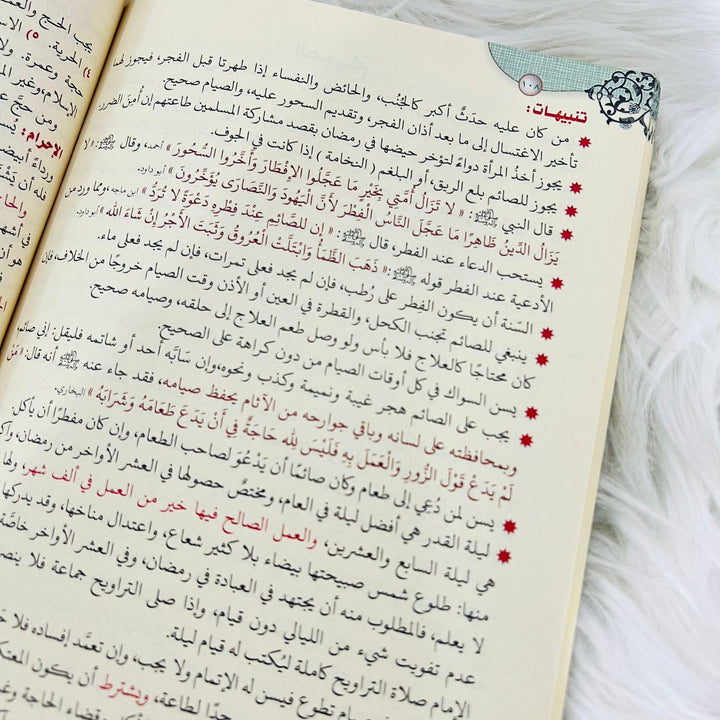 ١٠٨
تنبيهات:
من كان عليه حدَثٌ أكبر كالجُنُب، والحائض والنفساء إذا طهرتا قبل الفجر، فيجوز لهما
تأخير الاغتسال إلى ما بعد أذان الفجر، وتقديم السحور عليه، والصيام صحيح.
يجوز أخذُ المرأة دواءً لتؤخر حيضها في رمضان بقصد مشاركة المسلمين طاعتهم إن أُمِنَ الضرر.
يجوز للصائم بلع الريق، أو البلغم ( النخامة ) إذا كانت في الجوف.
قال النبي ﷺ: « لَا تَزَالُ أُمَّتِي بِخَيْرٍ مَا عَجَّلُوا الإِفْطَارَ وَأَخَّرُوا السُّحُورَ » أحمد، وقال ﷺ: « لَا
يَزَالُ الدِّينُ ظَاهِرًا مَا عَجَّلَ النَّاسُ الْفِطْرَ لأَنَّ الْيَهُودَ وَالنَّصَارَى يُؤَخِّرُونَ » أبو داود.
يستحب الدعاء عند الفطر، قال ﷺ: « إِن لِلصَّائِمِ عِنْدَ فِطْرِهِ دَعْوَةً لَا تُرَدُّ » ابن ماجه، ومما ورد من
الأدعية عند الفطر قوله ﷺ: « ذَهَبَ الظَّمَأُ وَابْتَلَّتْ الْعُرُوقُ وَثَبَتَ الْأَجْرُ إِنْ شَاءَ الله » أبو داود.
السّنة أن يكون الفطر على رُطب، فإن لم يجد فعلى تمرات، فإن لم يجد فعلى ماء.
ينبغي للصائم تجنب الكحل، والقطرة في العين أو الأذن وقت الصيام خروجًا من الخلاف، فإن
كان محتاجًا كالعلاج فلا بأس ولو وصل طعم العلاج إلى حلقه، وصيامه صحيح.
يسن السواك في كل أوقات الصيام من دون كراهة على الصحيح.
يجب على الصائم هجر غيبة ونميمة وكذب ونحوه، وإن سَابَّه أحد أو شاتمه فليقل: إني صائم،
وبمحافظته على لسانه وباقي جوارحه من الآثام يحفظ صيامه، فقد جاء عنه ﷺ أنه قال: « مَنْ
لَمْ يَدَعْ قَوْلَ الزُّورِ وَالْعَمَلَ بِهِ فَلَيْسَ لِله حَاجَةٌ فِي أَنْ يَدَعَ طَعَامَهُ وَشَرَابَهُ » البخاري.
يسن لمن دُعِي إلى طعام وكان صائمًا أن يَدْعُوَ لصاحب الطعام، وإن كان مفطرًا أن يأكل.
ليلة القدر هي أفضل ليلة في العام، ومختصٌّ حصولها في العشر الأواخر من رمضان،
هي ليلة السابع والعشرين، والعمل الصالح فيها خير من العمل في ألف شهر، ولها
منها: طلوع شمس صبيحتها بيضاء بلا كثير شعاع، واعتدال مناخها، وقد يدركها
لا يعلم، فالمطلوب منه أن يجتهد في العبادة في رمضان، وفي العشر الأواخر خاصَّة
عدم تفويت شيء من الليالي دون قيام، وإذا صلى التراويح جماعة فلا
الإمام صلاة التراويح كاملة ليُكتب له قيام ليلة.
صيام تطوع فيسن له الإتمام ولا يجب، وإن تعمَّد إفساده فلا
لطاعة، ويشترط أن يكون
قضاء الحاجة
يجب الحج
٤) الحرية. ٥)
حجة وعمرة.
الإسلام، وغير
ومن حج
الإحرام:
ورداءً